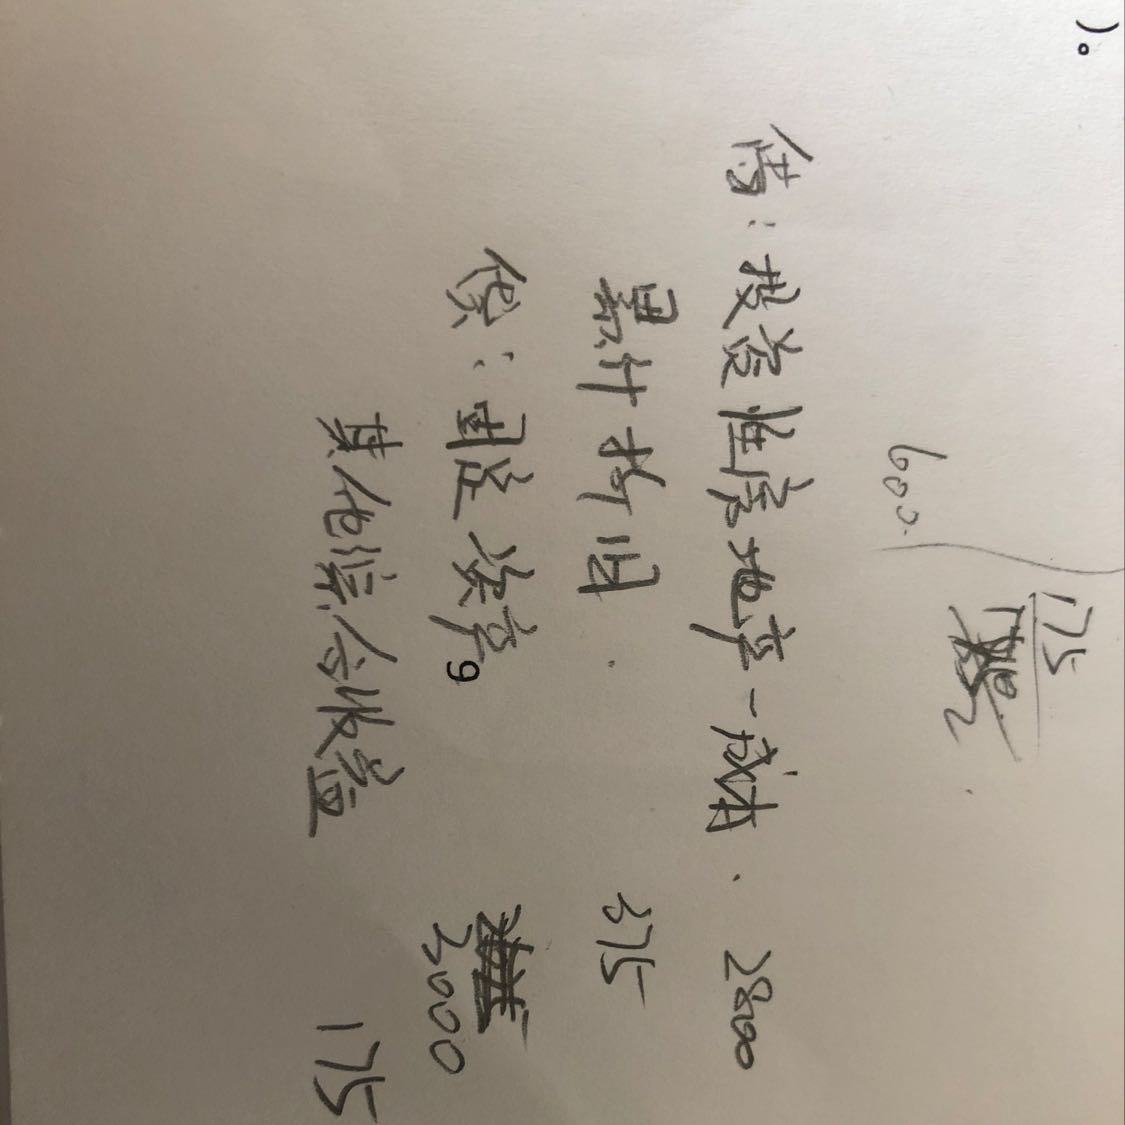 )。
175
600.
借：投资性房地产－成本. 2800
累计折旧. 375
贷：固定资产 3000
9
其他综合收益 175